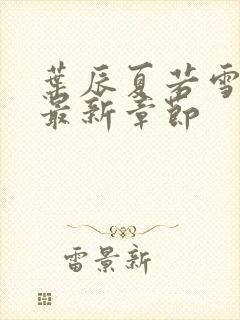 葉辰夏若雪
最新章節
雷景新